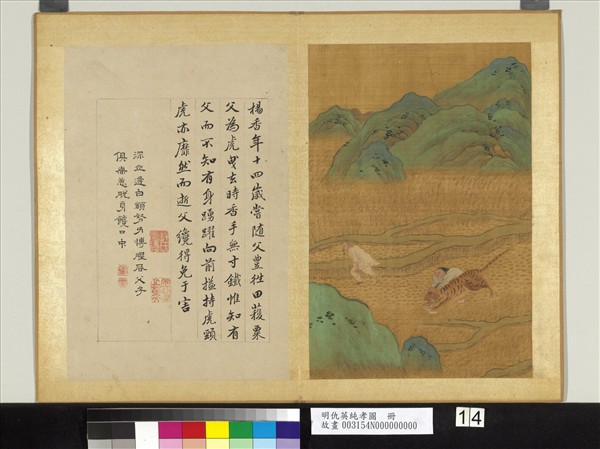 楊香年十四歲嘗随父豐往田穫粟
父為虎曳去時香手無寸鐵惟知有
父而不知有身踴躍向前搤持虎頸
虎亦靡然而逝父纔得免于害
深立逢白額努力搏腥風父子
俱無恙脫身饞口中
明仇英純孝圖 冊
故畫 003154N000000000
14